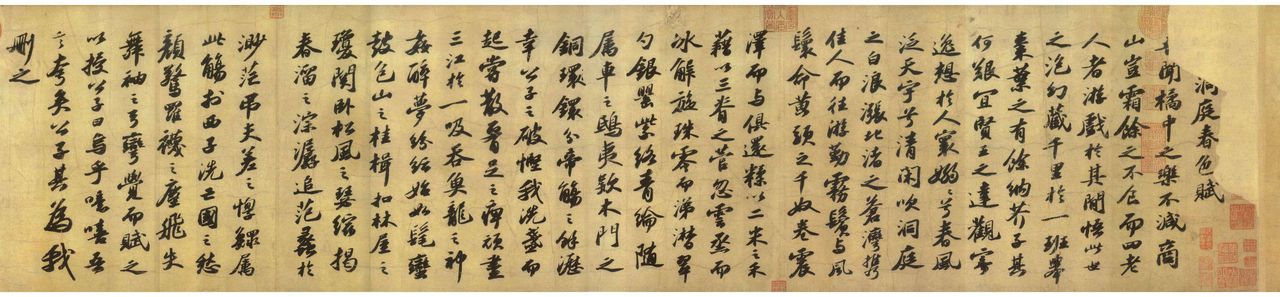 洞庭春色賦
聞橘中之樂不減商
山豈霜餘之不食而四老
人者游戲於其間悟此世
之泡幻藏千里於一班舉
棗葉之有餘納芥子其
何艱宜賢王之達觀寄
逸想於人寰嫋嫋兮春風
泛天宇兮清閑吹洞庭
之白浪漲北渚之蒼灣攜
佳人而往游勤霧鬢与風
鬟命黄頭之千奴卷震
澤而与俱還糅以二米之禾
藉以三脊之菅忽雲烝而
冰解旋珠零而涕潸翠
勺銀罌紫絡青綸隨
属車之鴟夷款木門之
銅環鏁分帝觴之餘瀝
幸公子之破慳我洗盞而
起嘗散腰足之痹頑盡
三江於一吸吞魚龍之神
姦醉夢紛紜始如髦蠻
鼓包山之桂楫扣林屋之
瓊關卧松風之瑟縮揭
春溜之淙潺追范蠡於
渺茫吊夫差之惸鰥属
此觴於西子洗亡國之愁
顏驚羅襪之塵飛失
舞袖之弓彎覺而賦之
以授公子曰烏乎噫嘻吾
言夸矣公子其為我
刪之